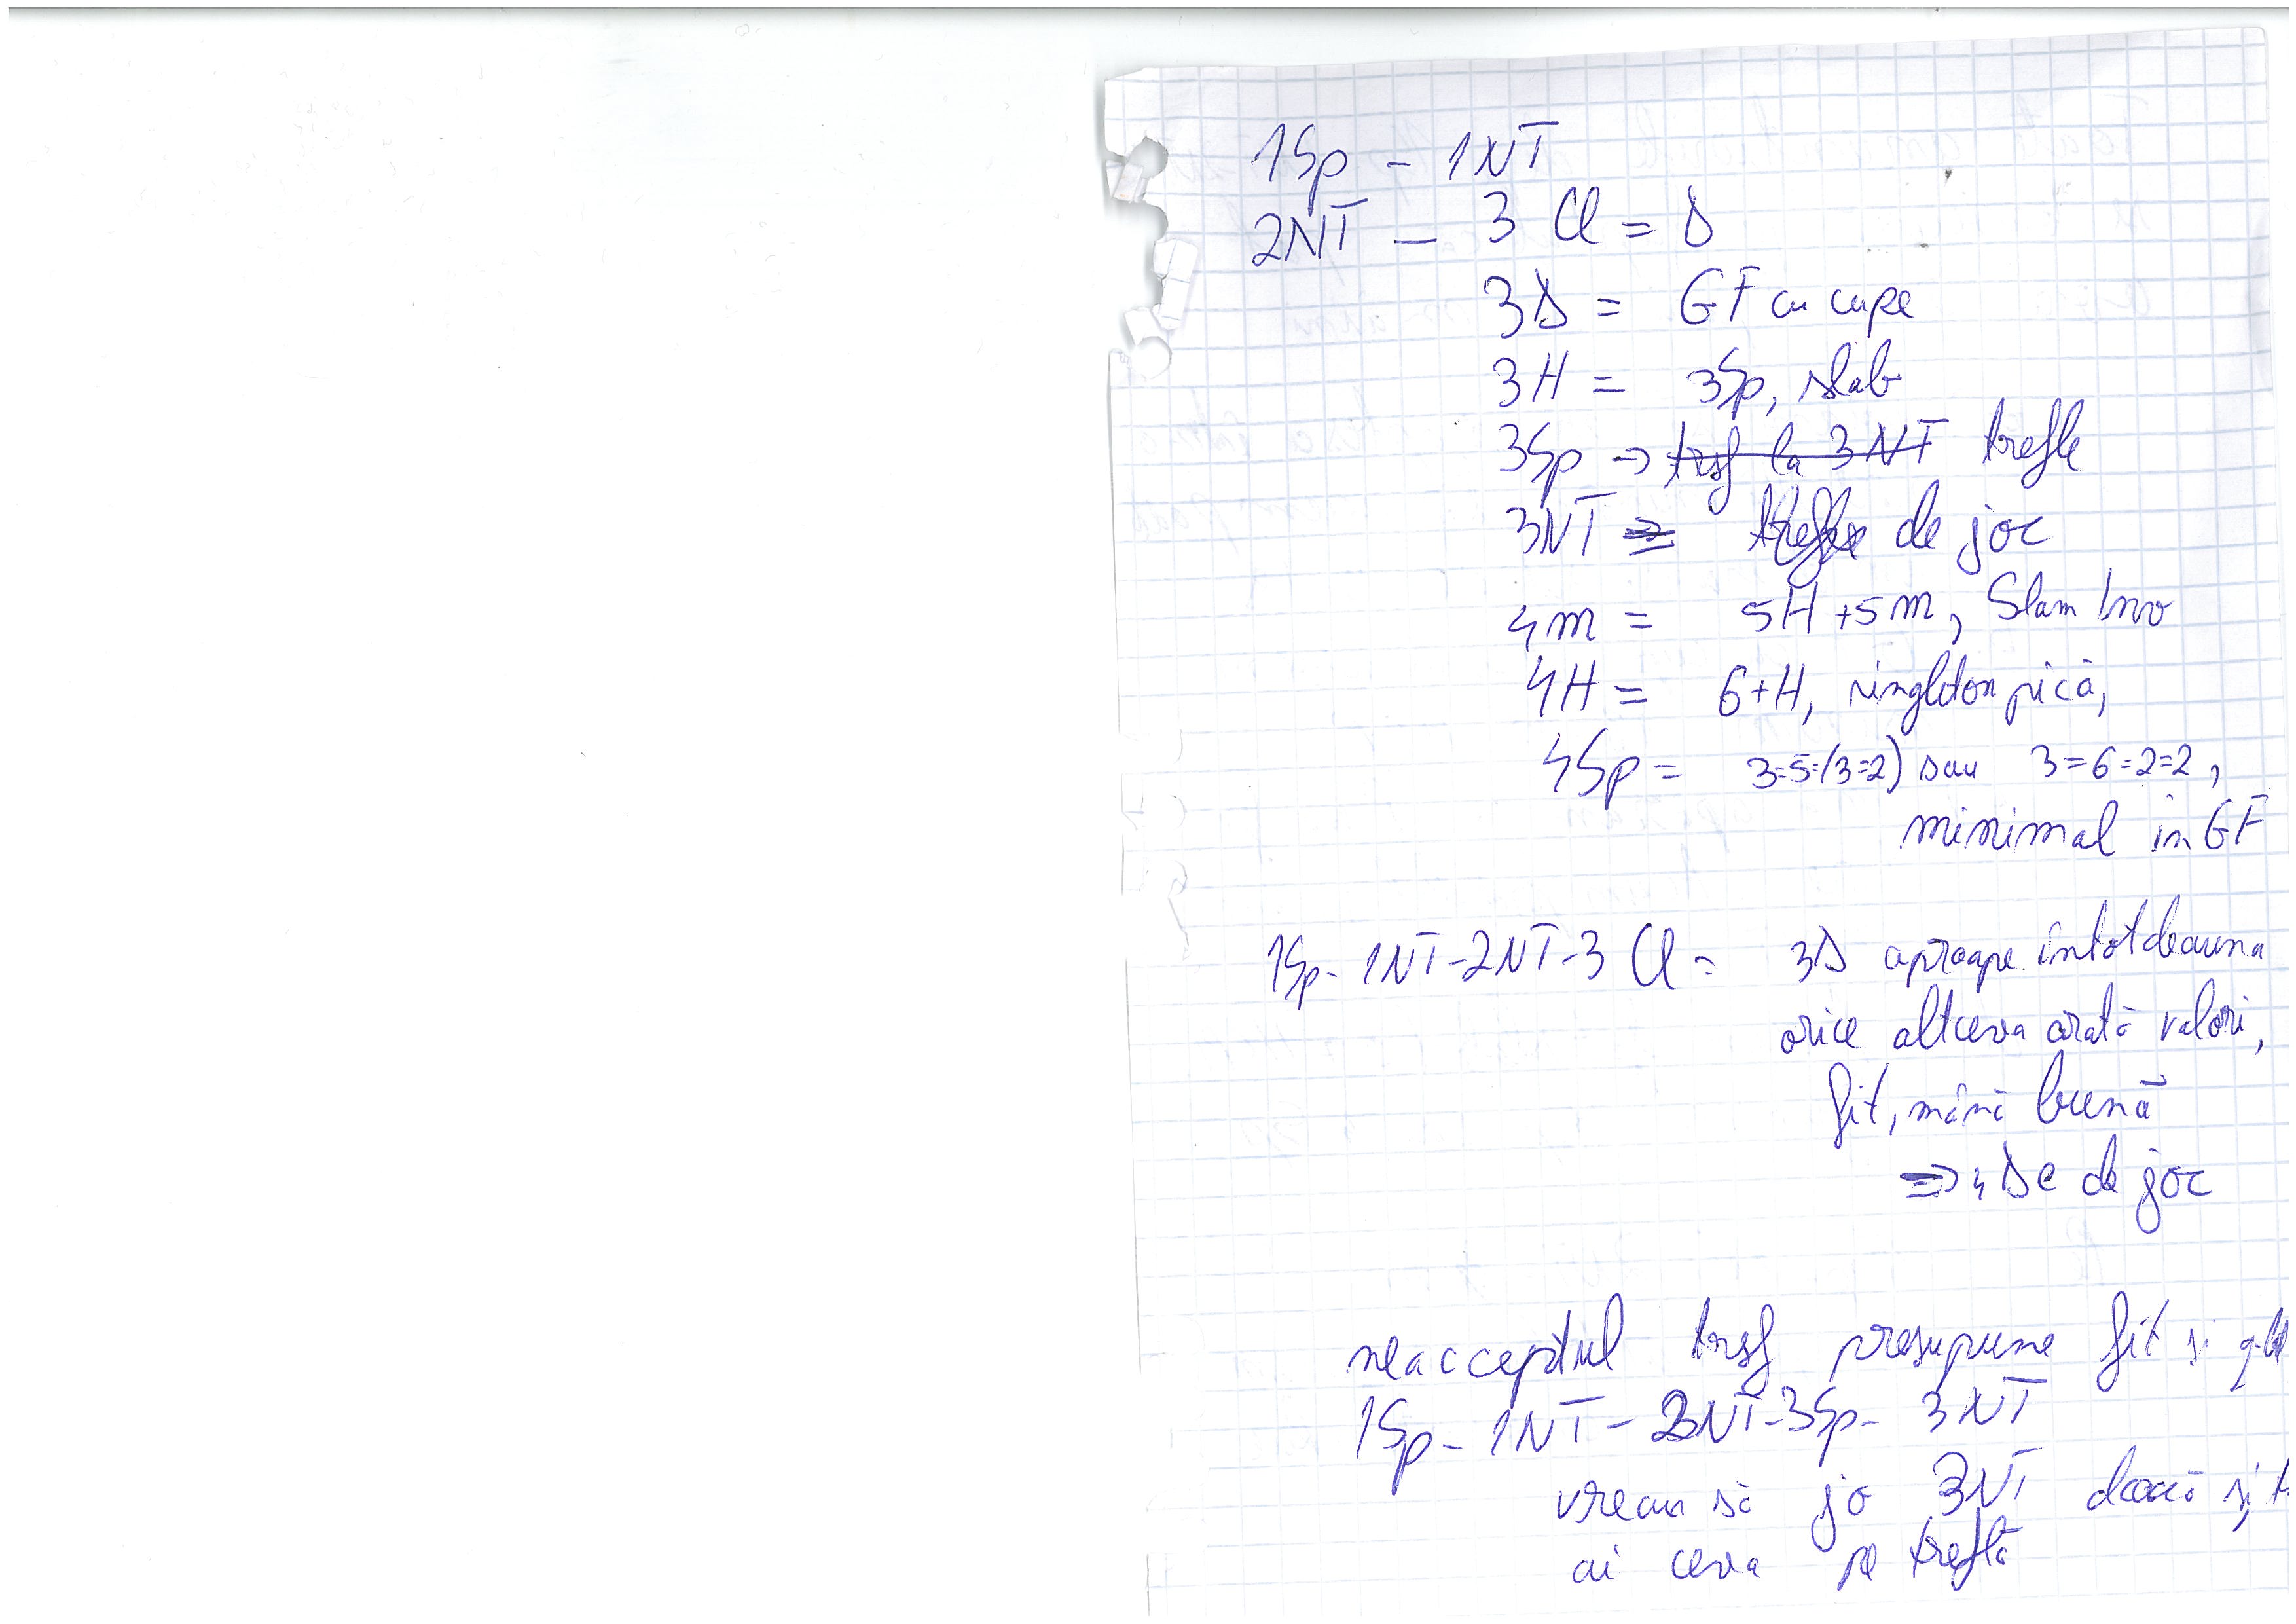 1Sp - 1NT
2NT - 3 Cl = D
3D = GF cu cupe
3H = 3Sp, slab
3Sp → trsf la 3NT trefle
3NT = trefle de joc
4m = 5H +5m, Slam Inv
4H = 6+H, singleton pică,
4Sp = 3=5=(3=2) sau 3=6=2=2,
minimal in GF
1Sp- 1NT-2NT-3 Cl = 3D aproape întotdeauna
orice altceva arată valori,
fit, mână bună
=> 4D e de joc
neacceptul trsf presupune fit și
1Sp - 1NT - 2NT-3Sp- 3NT
vreau să jo 3NT dacă și
ai ceva pe treflă